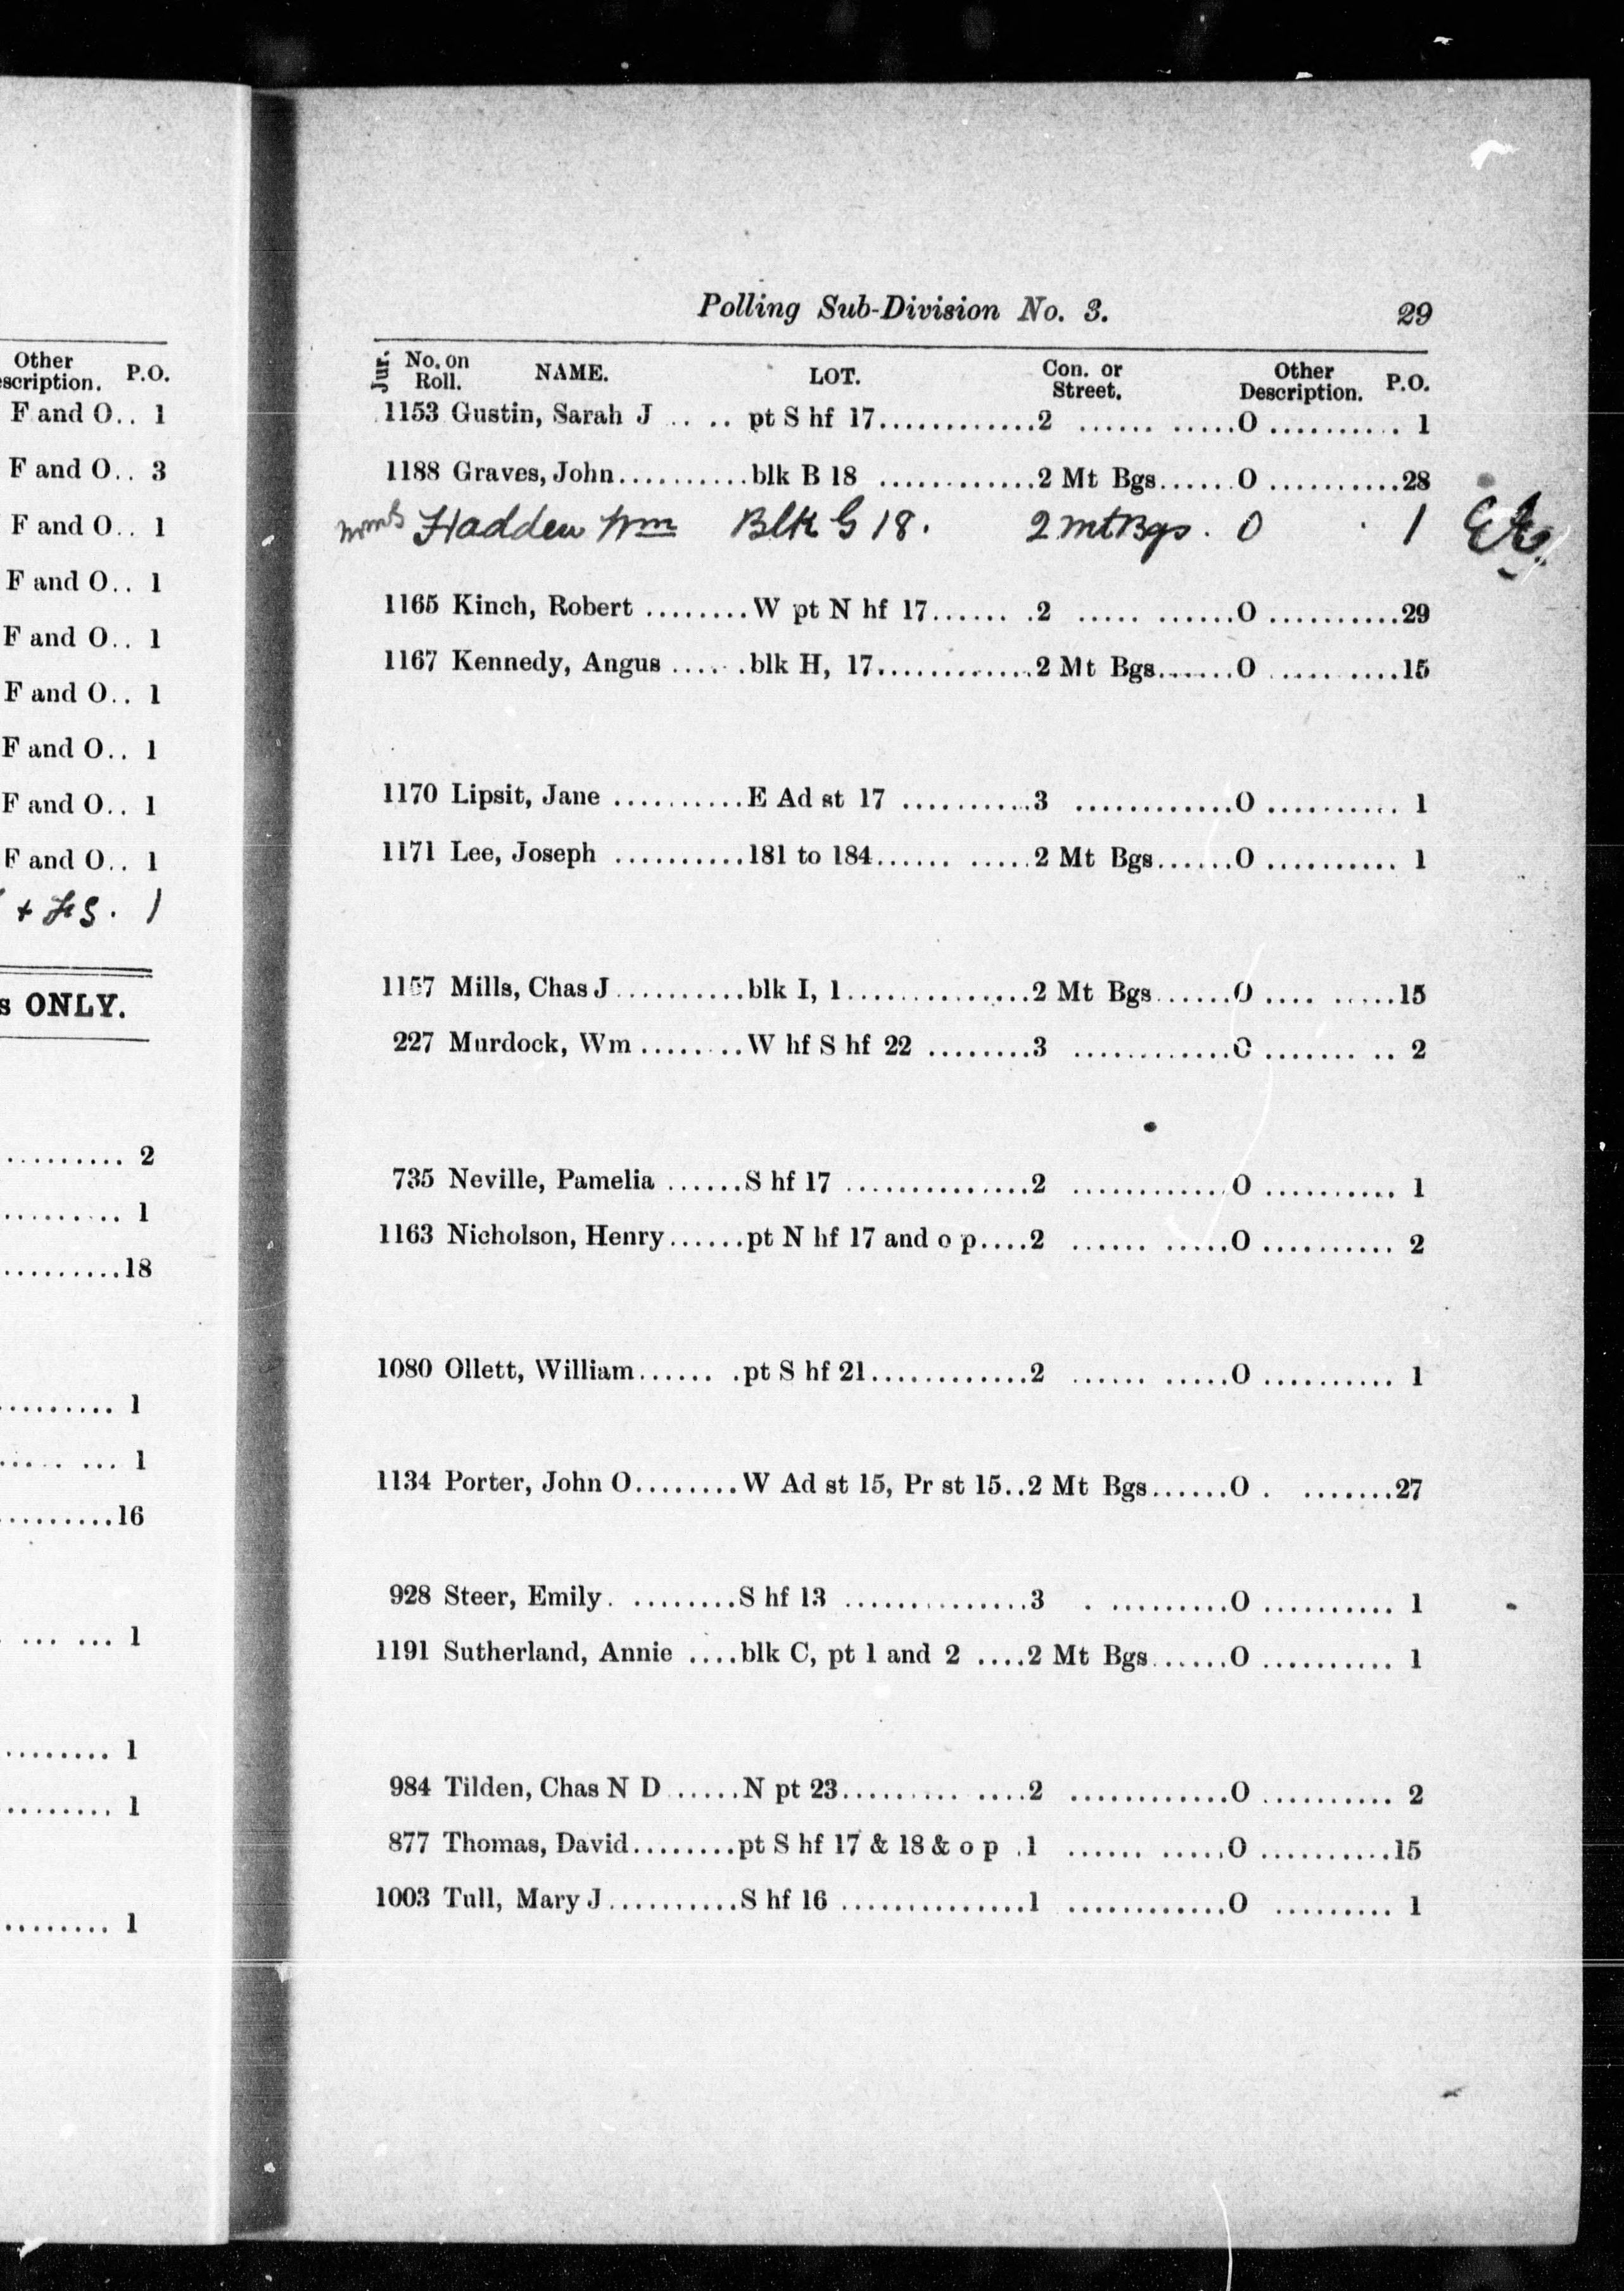 Other
escription. P.O.
F and O.. 1
F and O.. 3
F and O.. 1
F and O.. 1
F and O.. 1
F and O.. 1
F and O.. 1
F and O.. 1
F and O.. 1
1
s ONLY.
......... 2
......... 1
.........18
......... 1
..... ... 1
.........16
... ... 1
........ 1
........ 1
........ 1
Polling Sub-Division No. 3. 29
Jur. No. on Roll. NAME. LOT. Con. or Street. Other Description. P.O.
1153 Gustin, Sarah J .. .. pt S hf 17.............2 ...... .....O .......... 1
1188 Graves, John...........blk B 18 ............2 Mt Bgs......O ..........28
Hadden Wm Blk G 18. 2 Mt Bgs. O . 1
1165 Kinch, Robert ........W pt N hf 17...... .2 ..... ......O ..........29
1167 Kennedy, Angus ......blk H, 17.............2 Mt Bgs......O ..... ....15
1170 Lipsit, Jane ..........E Ad st 17 ..........3 ............O .......... 1
1171 Lee, Joseph ..........181 to 184...... .....2 Mt Bgs......O .......... 1
1157 Mills, Chas J...........blk I, 1...............2 Mt Bgs......O .... .....15
227 Murdock, Wm ........W hf S hf 22 ........3 ............O ....... .. 2
735 Neville, Pamelia ......S hf 17 ...............2 ............O .......... 1
1163 Nicholson, Henry......pt N hf 17 and o p....2 ...... .....O .......... 2
1080 Ollett, William...... .pt S hf 21.............2 ...... .....O .......... 1
1134 Porter, John O........W Ad st 15, Pr st 15..2 Mt Bgs......O . .......27
928 Steer, Emily. ........S hf 13 ..............3 . .........O .......... 1
1191 Sutherland, Annie ....blk C, pt 1 and 2 ....2 Mt Bgs......O .......... 1
984 Tilden, Chas N D ......N pt 23......... ....2 ............O .......... 2
877 Thomas, David........pt S hf 17 & 18 & o p .1 ...... .....O ..........15
1003 Tull, Mary J..........S hf 16 ..............1 ............O ......... 1